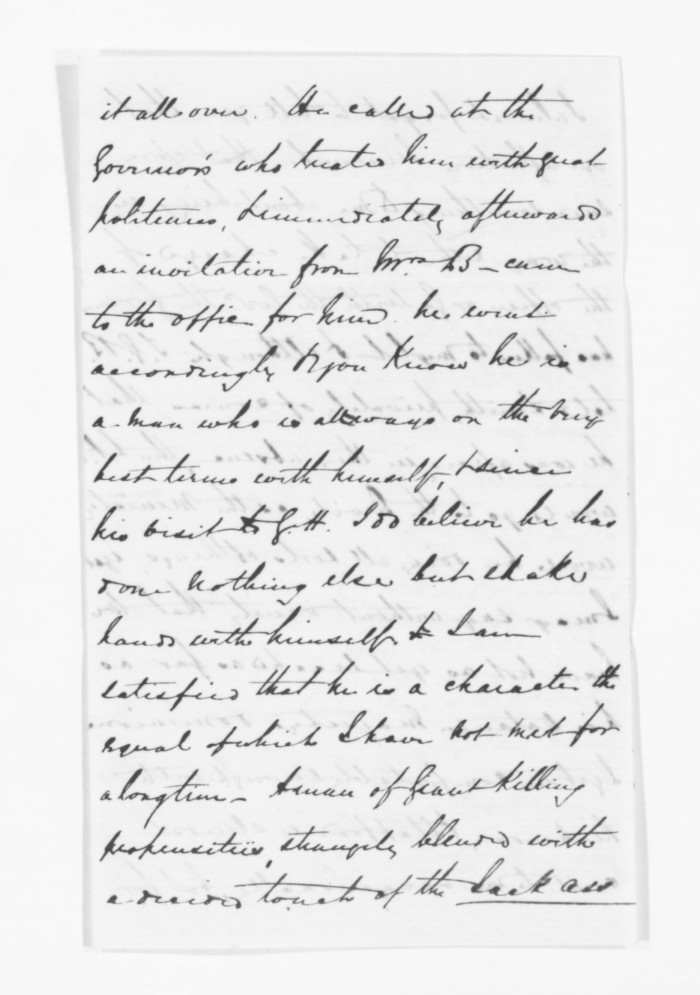 it all over. He called at the
Governor's who treated him with great
politeness, & immediately afterwards
an invitation from Mrs. B— came
to the office for him. he went
accordingly & you know he is
a man who is allways on the very
best terms with himself, & since
his visit to G.H. I do believe he has
done nothing else but shake
hands with himself & I am
satisfied that he is a character the
equal of which I have not met for
a long time — A man of Giant Killing
propensities, strangely blended with
a decided touch of the Jack ass